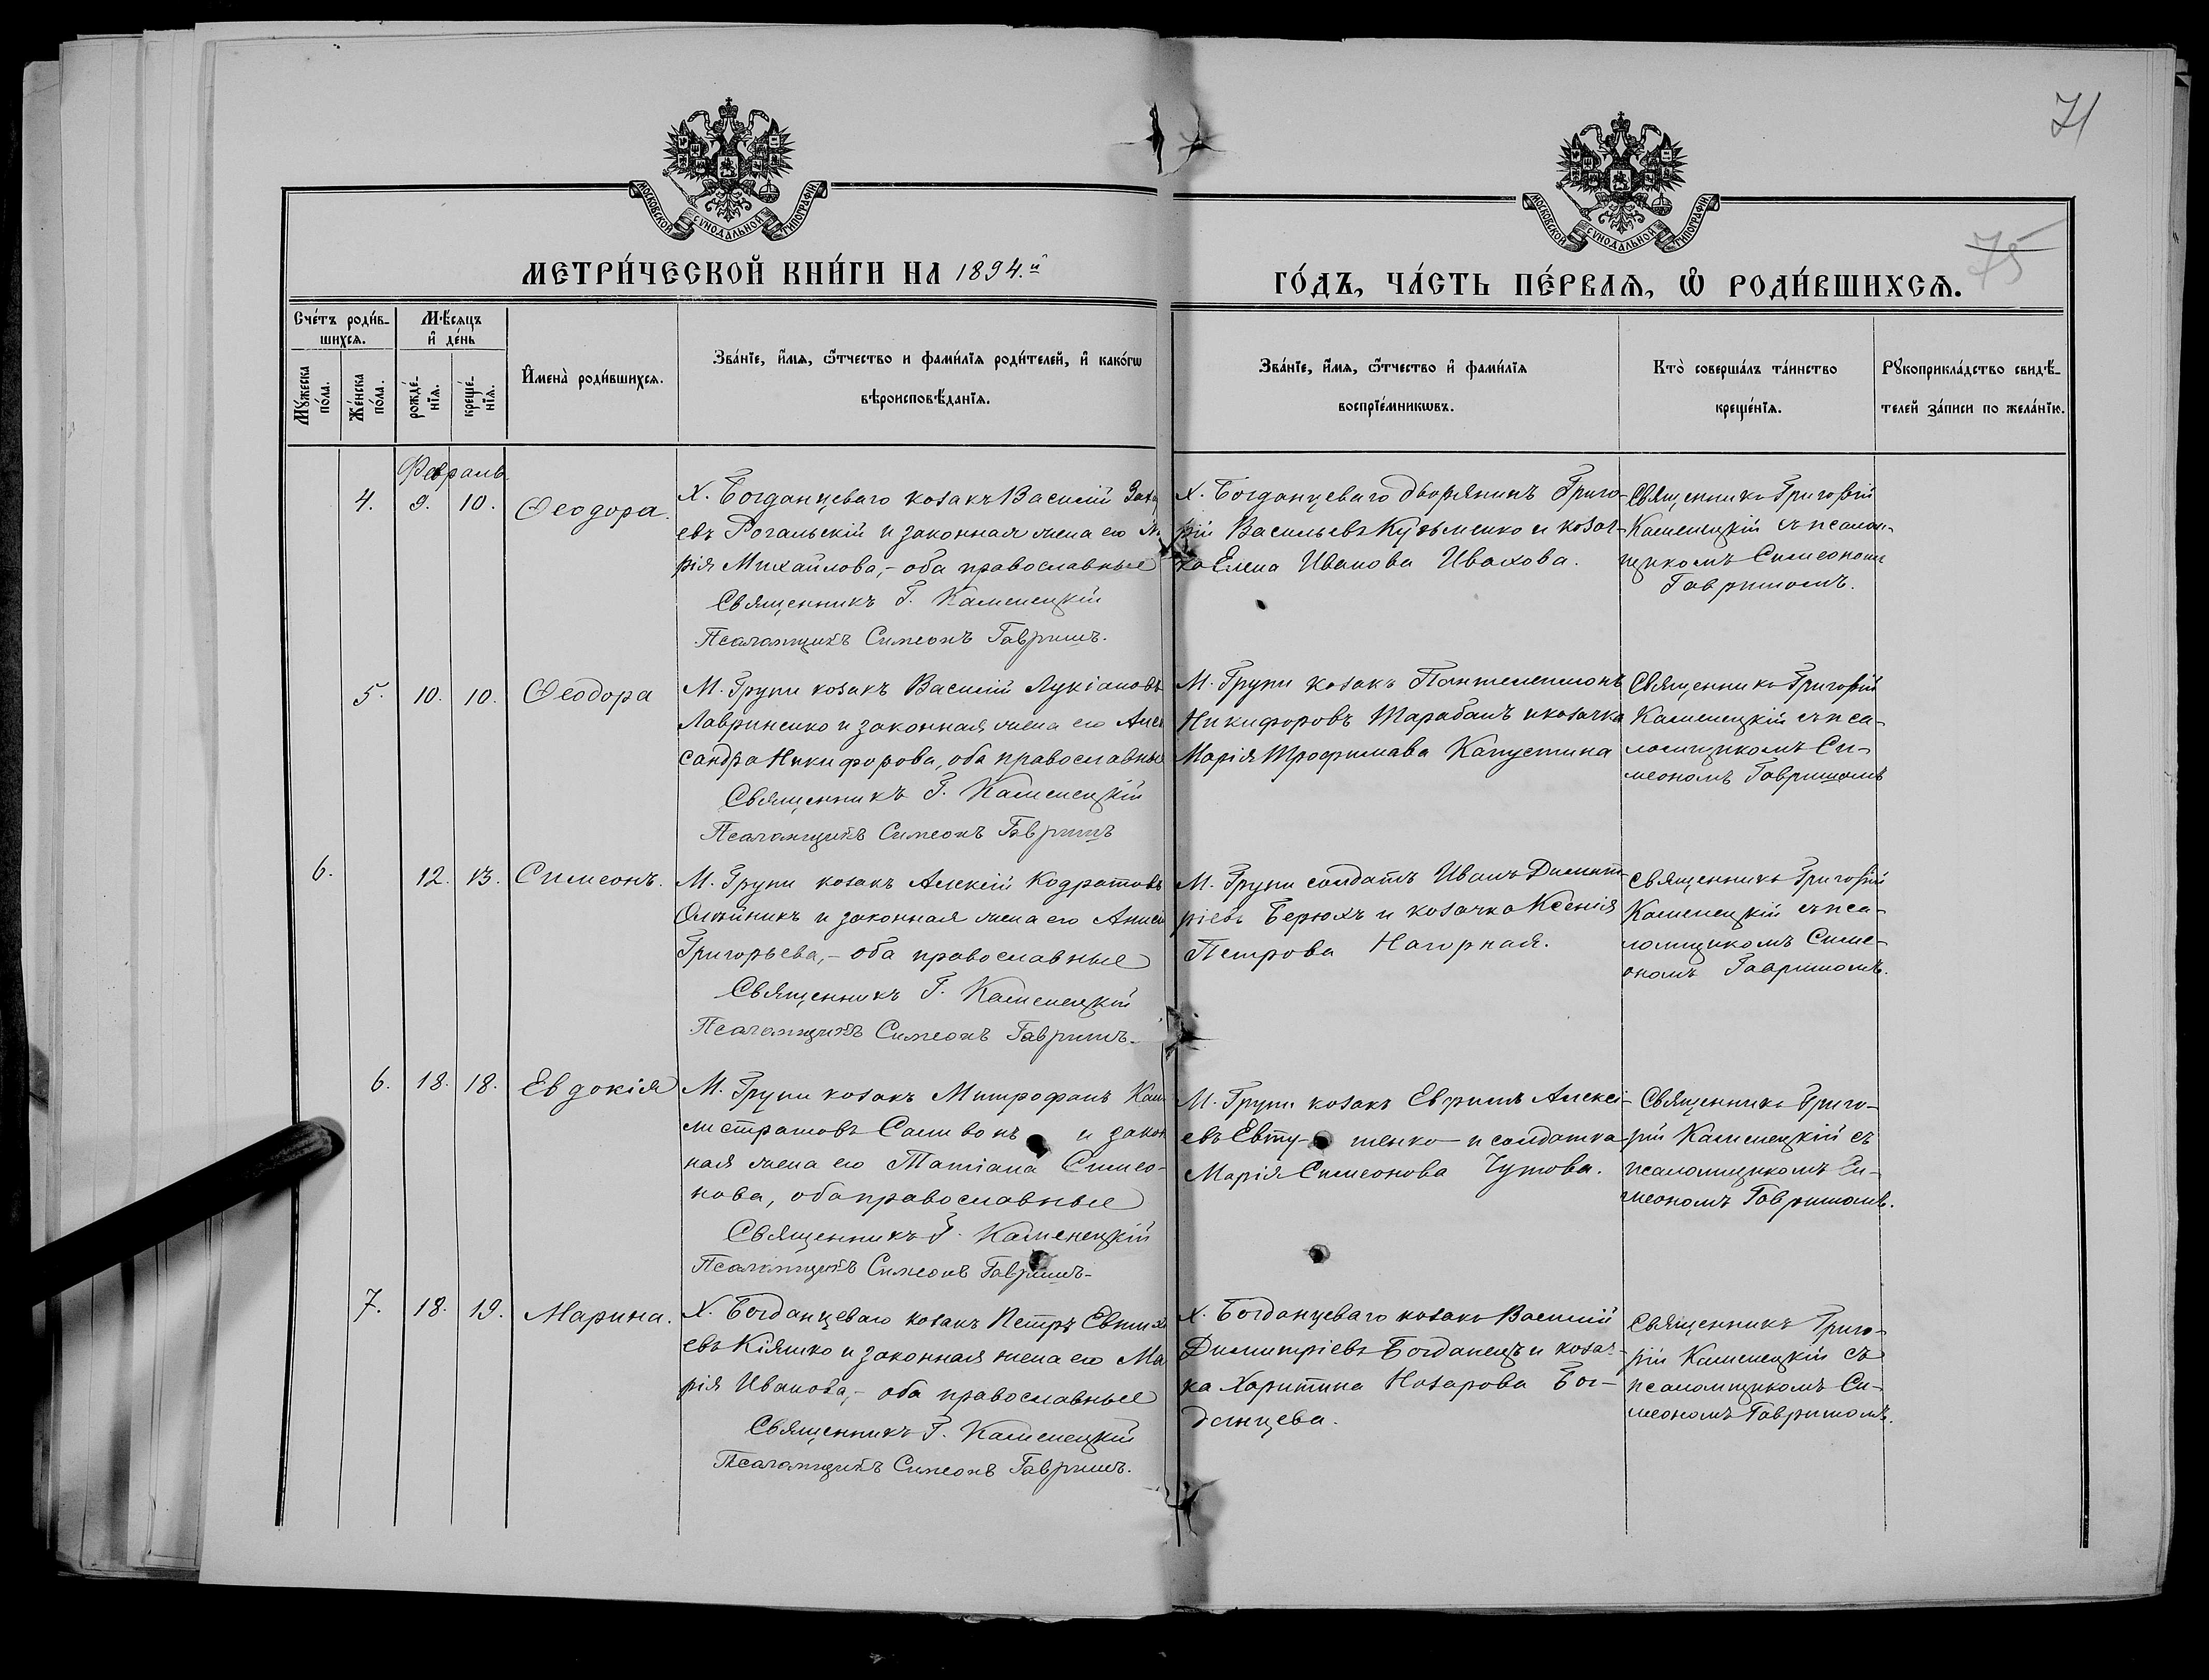 71
75
МОСКОВСКОЙ СУНОДАЛЬНОЙ ТИПОГРАФІИ
МОСКОВСКОЙ СУНОДАЛЬНОЙ ТИПОГРАФІИ
МЕТРИ́ЧЕСКОЙ КНИ́ГИ НА 1894.й
ГО́ДЪ, ЧА́СТЬ ПЕ́РВАѦ, Ѽ РОДИ́ВШИХСѦ.
Сче́тъ роди́в-
шихсѧ.
Мѣ́сѧцъ
и҆ де́нь
Мꙋ́жеска
по́ла.
Же́нска
по́ла.
рожде́-
нїѧ.
креще́-
нїѧ.
И҆мена̀ роди́вшихсѧ.
Зва́нїе, и҆́мѧ, ѻ҆́тчество и фами́лїѧ роди́телей, и҆ како́гѡ
вѣроисповѣ́данїѧ.
Зва́нїе, и҆́мѧ, ѻ҆́тчество и҆ фами́лїѧ
воспрїе́мникѡвъ.
Кто̀ соверша́лъ та́инство
креще́нїѧ.
Рꙋкоприкла́дство свидѣ́-
телей за́писи по жела́нїю.
Февраль
4. 9. 10. Ѳеодора.
Х. Богданцеваго козакъ Василій Заха
евъ Рогальскій и законная жена его
рія Михайлова,- оба православные
Священникъ Г. Каменецкій
Псаломщикъ Симеонъ Гавришъ.
Х. Богданцеваго дворянинъ Григо-
рій Васильевъ Кузьменко и козач-
ка Елена Иванова Ивахова.
Священникъ Григорій
Каменецкій съ псалом-
щикомъ Симеономъ
Гавришомъ.
5. 10. 10. Ѳеодора
М. Груни козакъ Василій Лукіановъ
Лавриненко и законная жена его Алек
сандра Никифорова, оба православные
Священникъ Г. Каменецкій
Псаломщикъ Симеонъ Гавришъ
М. Груни козакъ Пантелеимонъ
Никифоровъ Шарабанъ и козачка
Марія Трофимава Капустина
Священникъ Григорій
Каменецкій съ пса-
ломщикомъ Си-
меономъ Гавришомъ
6. 12. 13. Симеонъ.
М. Груни козакъ Алексій Кодратовъ
Олѣйникъ и законная жена его Анисія
Григорьева,- оба православные
Священникъ Г. Каменецкій
Псаломщикъ Симеонъ Гавришъ.
М. Груни солдатъ Иванъ Димит-
ріевъ Берюхъ и козачка Ксенія
Петрова Нагорная.
Священникъ Григорій
Каменецкій съ пса-
ломщикомъ Симе-
ономъ Гавришомъ.
6. 18. 18. Евдокія
М. Груни козакъ Митрофанъ Кал
листратовъ Саливонъ и закон
ная жена его Татіана Симео-
нова, оба православные
Священникъ Г. Каменецкій
Псаломщикъ Симеонъ Гавришъ-
М. Груни козакъ Ефримъ Алексі-
евъ Евту- шенко и солдатка
Марія Симеонова Чутова.
Священникъ Григо-
рій Каменецкій съ
псаломщикомъ Си-
меономъ Гавришомъ.
7. 18. 19. Марина.
Х. Богданцеваго козакъ Петръ Евтих
евъ Кіяшко и законная жена его Ма
рія Иванова,- оба православные
Священникъ Г. Каменецкій
Псаломщикъ Симеонъ Гавришъ.
Х. Богданцеваго козакъ Василій
Димитріевъ Богданецъ и козач-
ка Харитина Назарова Бог-
данцева.
Священникъ Григо-
рій Каменецкій съ
псаломщикомъ Си-
меономъ Гавришомъ.